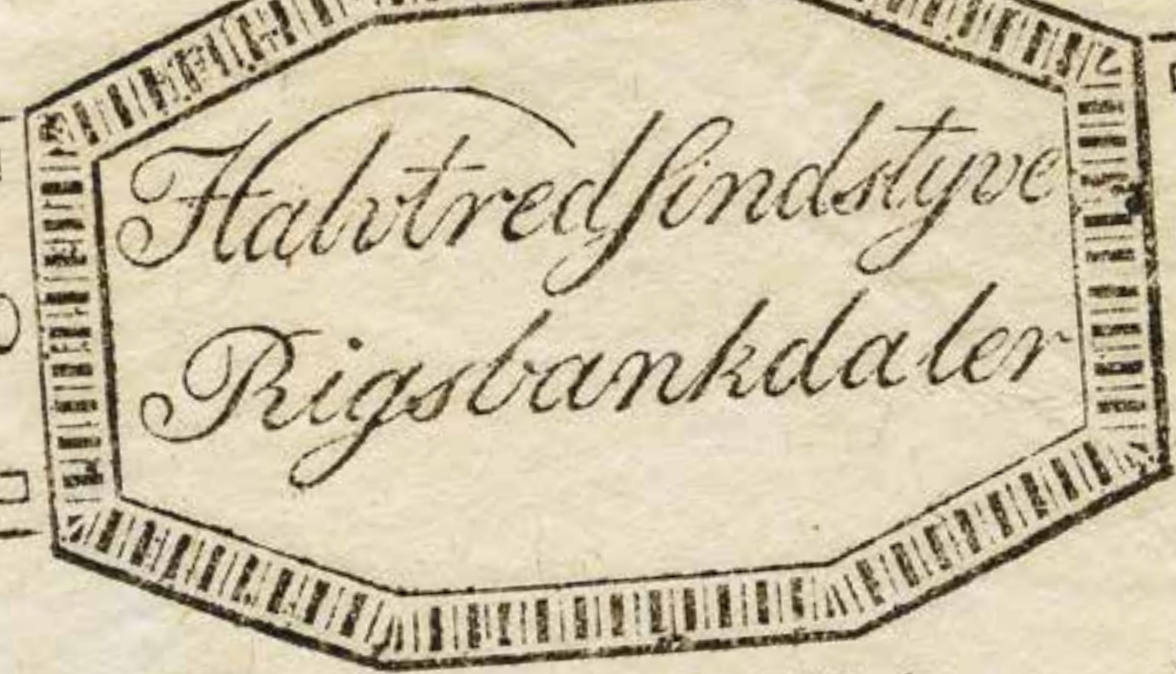 Halvtredſindstyve
Rigsbankdaler